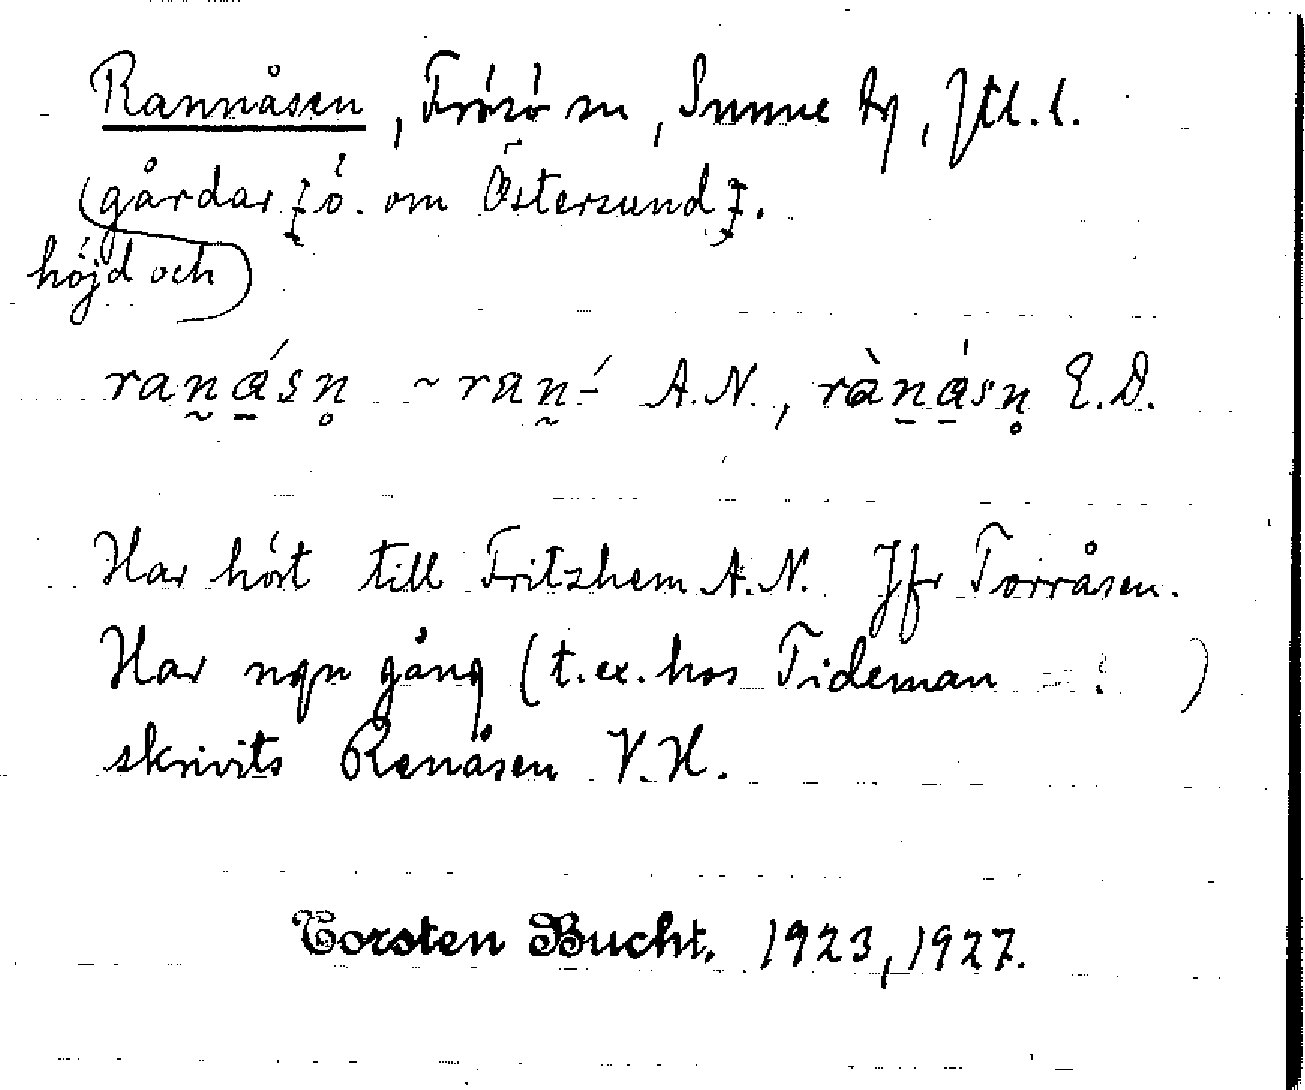 Rannåsen, Frösö sn, Sunne tg, Jtl. l.
(gårdar [ö. om Östersund].
höjd och)
ran̰á̱sn̥ ~ ran̰-́ A.N., ràṉá̱sn̥ E.D.
Har hört till Fritzhem A.N. Jfr Torråsen.
Har ngn gång (t.ex. hos Tideman )
skrivits Renåsen V.H.
Torsten Bucht. 1923, 1927.